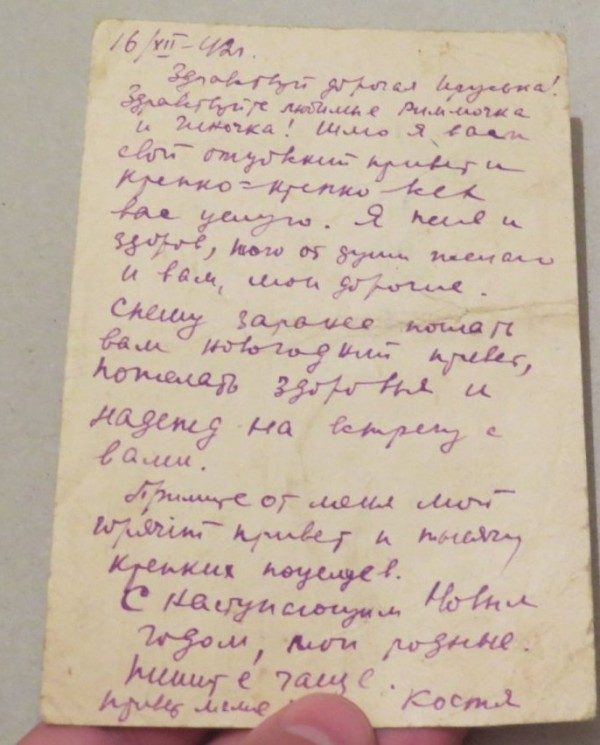 16/XII-42г.
Здравствуй дорогая Ируська!
Здравствуйте любимые Риммочка
и Ниночка! Шлю я вам
свой отцовский привет и
крепко=крепко всех
вас целую. Я жив и
здоров, чего от души желаю
и вам, мои дорогие.
Спешу заранее послать
вам новогодний привет,
пожелать здоровья и
надежд на встречу с
вами.
Примите от меня мой
горячий привет и тысячу
крепких поцелуев.
С наступающим Новым
годом, мои родные.
Пишите чаще.
Привет маме Костя